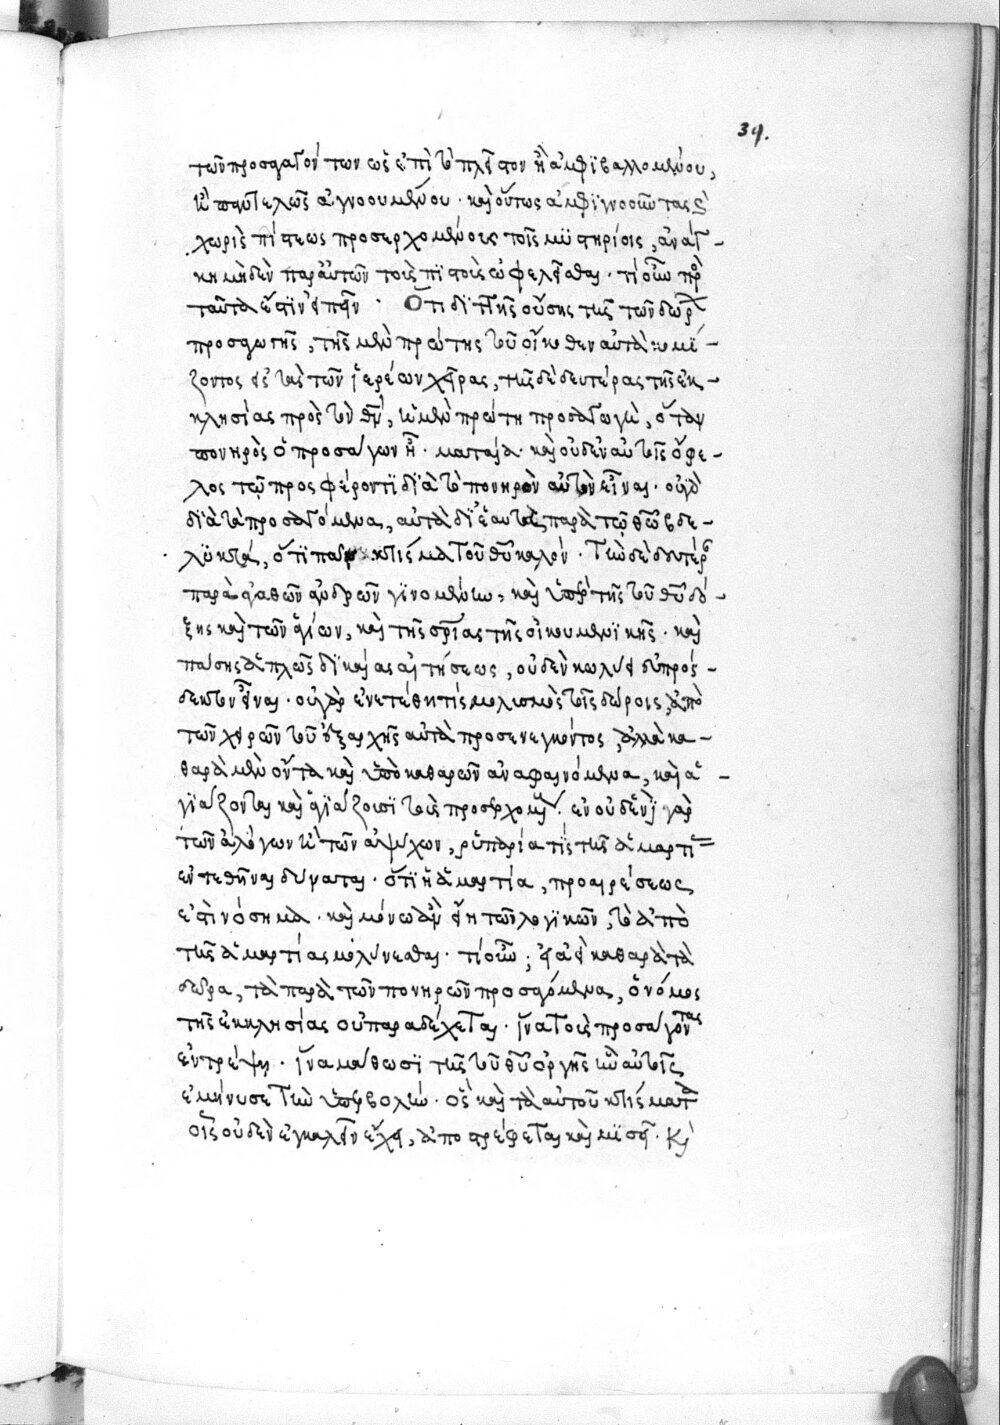 39.
τῶν προσαγόντων ὡς ἐπὶ τὸ πλεῖστον ἢ ἀμφιβαλλομένου,
ἢ παντελῶς ἀγνοουμένου · καὶ οὕτως ἀμφιγνοοῦντας καὶ
χωρὶς πίστεως προσερχομένους τοῖς μυστηρίοις, ἀνάγ-
κη μηδὲν παρ' αὐτῶν τοὺς πιστοὺς ὠφελεῖσθαι · τί οὖν πρὸς
ταῦτα ἔστιν εἰπεῖν · Ὅτι διττῆς οὔσης τῆς τῶν δώρων
προσαγωγῆς, τῆς μὲν πρώτης τοῦ οἴκοθεν αὐτὰ κομί-
ζοντος εἰς τὰς τῶν ἱερέων χεῖρας, τῆς δὲ δευτέρας τῆς ἐκ-
κλησίας πρὸς τὸν θν, ἡ μὲν πρώτη προσαγωγὴ, ὅταν
πονηρὸς ὁ προσάγων ᾖ · ματαία · καὶ οὐδὲν αὐτοῖς ὄφε-
λος τῷ προσφέροντι διὰ τὸ πονηρὸν αὐτὸν εἶναι · οὐ γὰρ
διὰ τὰ προσαγόμενα, αὐτὰ δι' ἑαυτὰ παρὰ τῷ θῶ βδε-
λυκτά, ὅτι πᾶν κτίσμα τοῦ θυ καλόν · Τὴν δὲ δευτέραν
παρὰ ἀγαθῶν ἀνδρῶν γινομένην, καὶ ὑπὲρ τῆς τοῦ θυ δό-
ξης καὶ τῶν ἁγίων, καὶ τῆς σρίας τῆς οἰκουμενικῆς · καὶ
πάσης ἁπλῶς δικαίας αἰτήσεως, οὐδὲν κωλύει εὐπρόσ-
δεκτον εἶναι · οὐ γὰρ ἐνετέθη τὶς μολισμὸς τοῖς δώροις, ἀπὸ
τῶν χειρῶν τοῦ ἐξ ἀρχῆς αὐτὰ προσενεγκόντος, ἀλλὰ κα-
θαρὰ μὲν ὄντα καὶ ὑπὸ καθαρῶν ἀναφαινόμενα, καὶ ἁ-
γιάζονται καὶ ἁγιάζουσι τοὺς προσερχομένους · ἐν οὐδενὶ γὰρ
τῶν ἀλόγων ἢ τῶν ἀψύχων, ῥυπαρία τίς τῆς ἁμαρτί
ἐντεθῆναι δύναται · ὅτι ἡ ἁμαρτία, προαιρέσεως
ἐστὶ νόσημα · καὶ μόνων ἂν εἴη τῶν λογικῶν, τὸ ἀπὸ
τῆς ἁμαρτίας μολύνεσθαι · τί οὖν; εἰ ἀεὶ καθαρὰ τὰ
δῶρα, τὰ παρὰ τῶν πονηρῶν προσαγόμενα, ὁ νόμος
τῆς ἐκκλησίας οὐ παραδέχεται · ἵνα τοὺς προσάγοντας
ἐντρέψῃ · ἵνα μάθωσι τῆς τοῦ θυ ὀργῆς ἣν αὐτοῖς
ἐμήνυσε τὴν ὑπερβολήν · ὃς καὶ τὰ αὐτοῦ κτίσματα
οἷς οὐδὲν ἐγκαλεῖν ἔχει, ἀποστρέφεται καὶ μισεῖ · κἀ